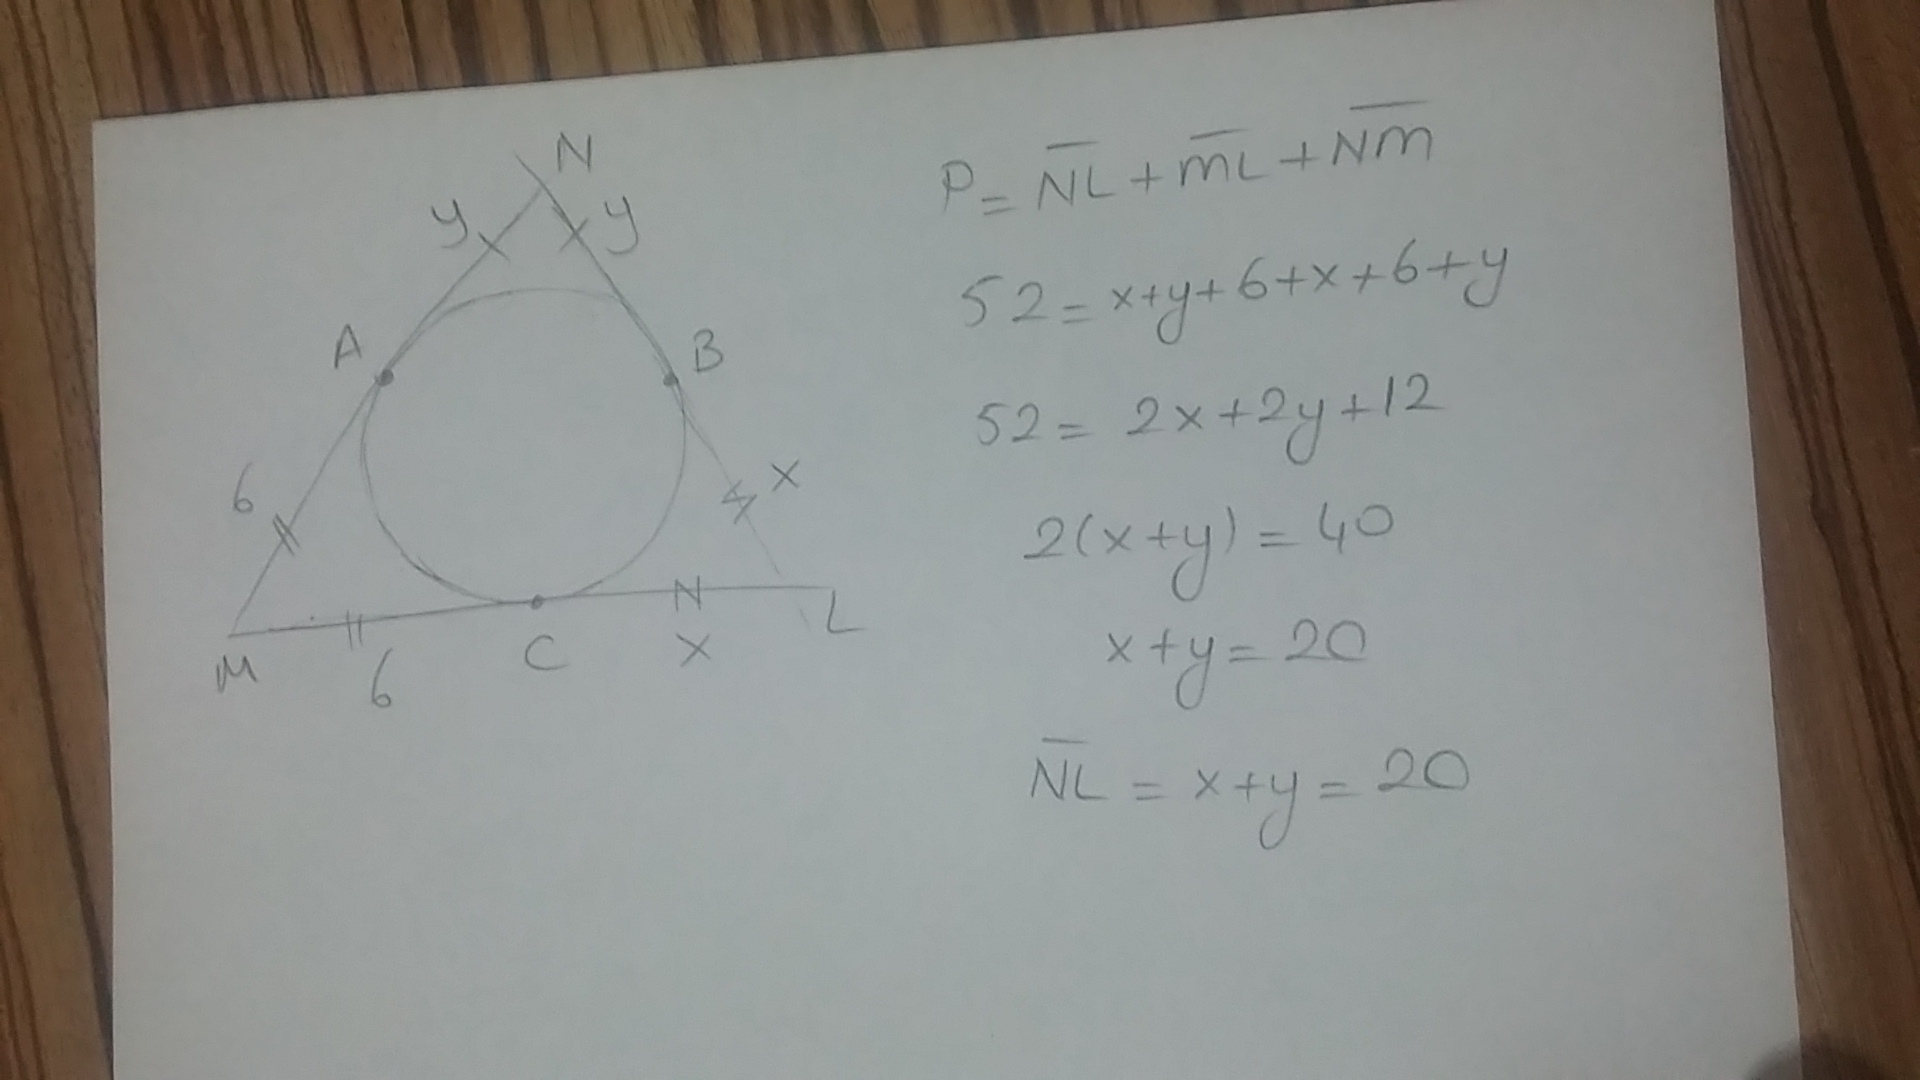 N
y y
A B
6 x
M 6 C x L
P = N̅L̅ + m̅L̅ + N̅m̅
52 = x+y+6+x+6+y
52 = 2x+2y+12
2(x+y) = 40
x+y = 20
N̅L̅ = x+y = 20